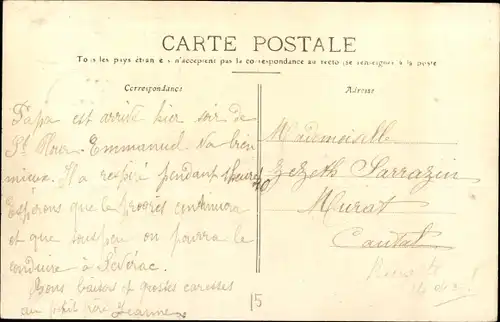 CARTE POSTALE
Tous les pays étrangers n'acceptent pas la correspondance au recto (se renseigner à la poste)
Correspondance
Adresse
Papa est arrivé hier soir de
St Flour. Emmanuel va bien
mieux. Il a respiré pendant
Espérons que le progrès continuera
et que sous peu on pourra le
conduire à Séverac.
Bons baisers et grosses caresses
au petit frère Jeanne
Mademoiselle
Zézeth Sarrazin
Murat
Cantal
15